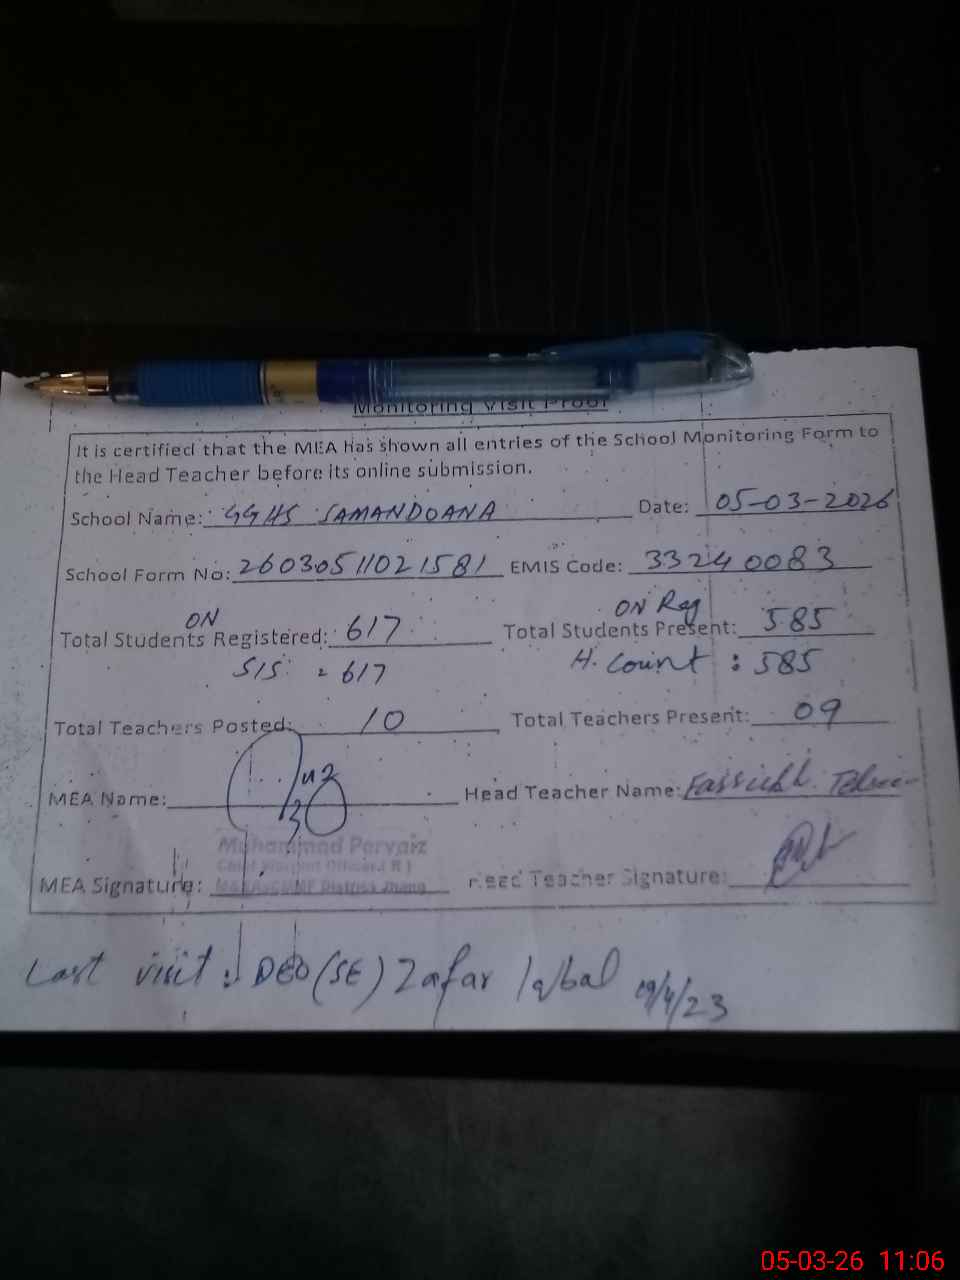 Monitoring Visit Proof
It is certified that the MEA has shown all entries of the School Monitoring Form to
the Head Teacher before its online submission.
School Name: GGHS SAMANDOANA Date: 05-03-2026
School Form No: 26030511021581 EMIS Code: 33240083
ON ON Reg
Total Students Registered: 617 Total Students Present: 585
SIS = 617 H. Count : 585
Total Teachers Posted: 10 Total Teachers Present: 09
MEA Name: Head Teacher Name:
Muhammad Parvaiz
Chief Warrant Officer ( R )
MEA Signature: District Jhang Head Teacher Signature:
Last visit : DEO (SE) Zafar Iqbal 19/4/23
05-03-26 11:06